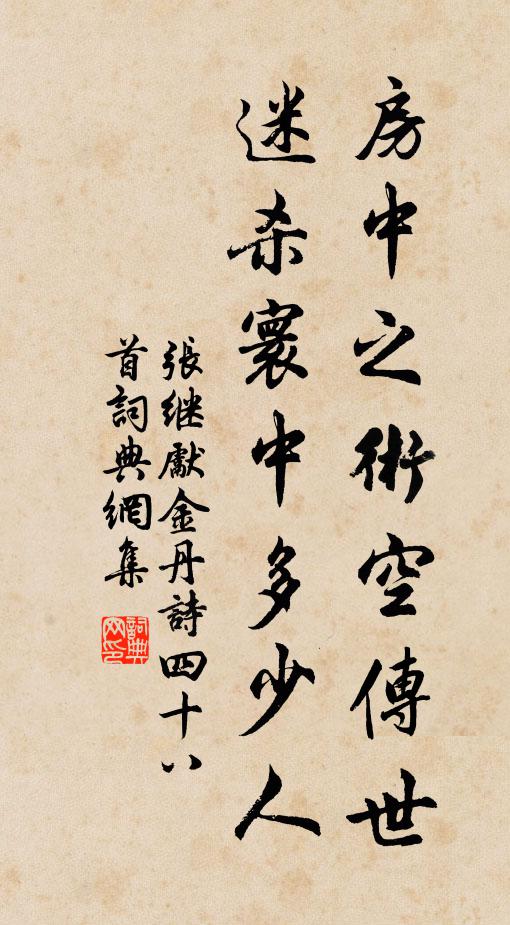 房中之術空傳世
迷杀寰中多少人
張继獻金丹詩四十八
首詞典網集
詞典网印